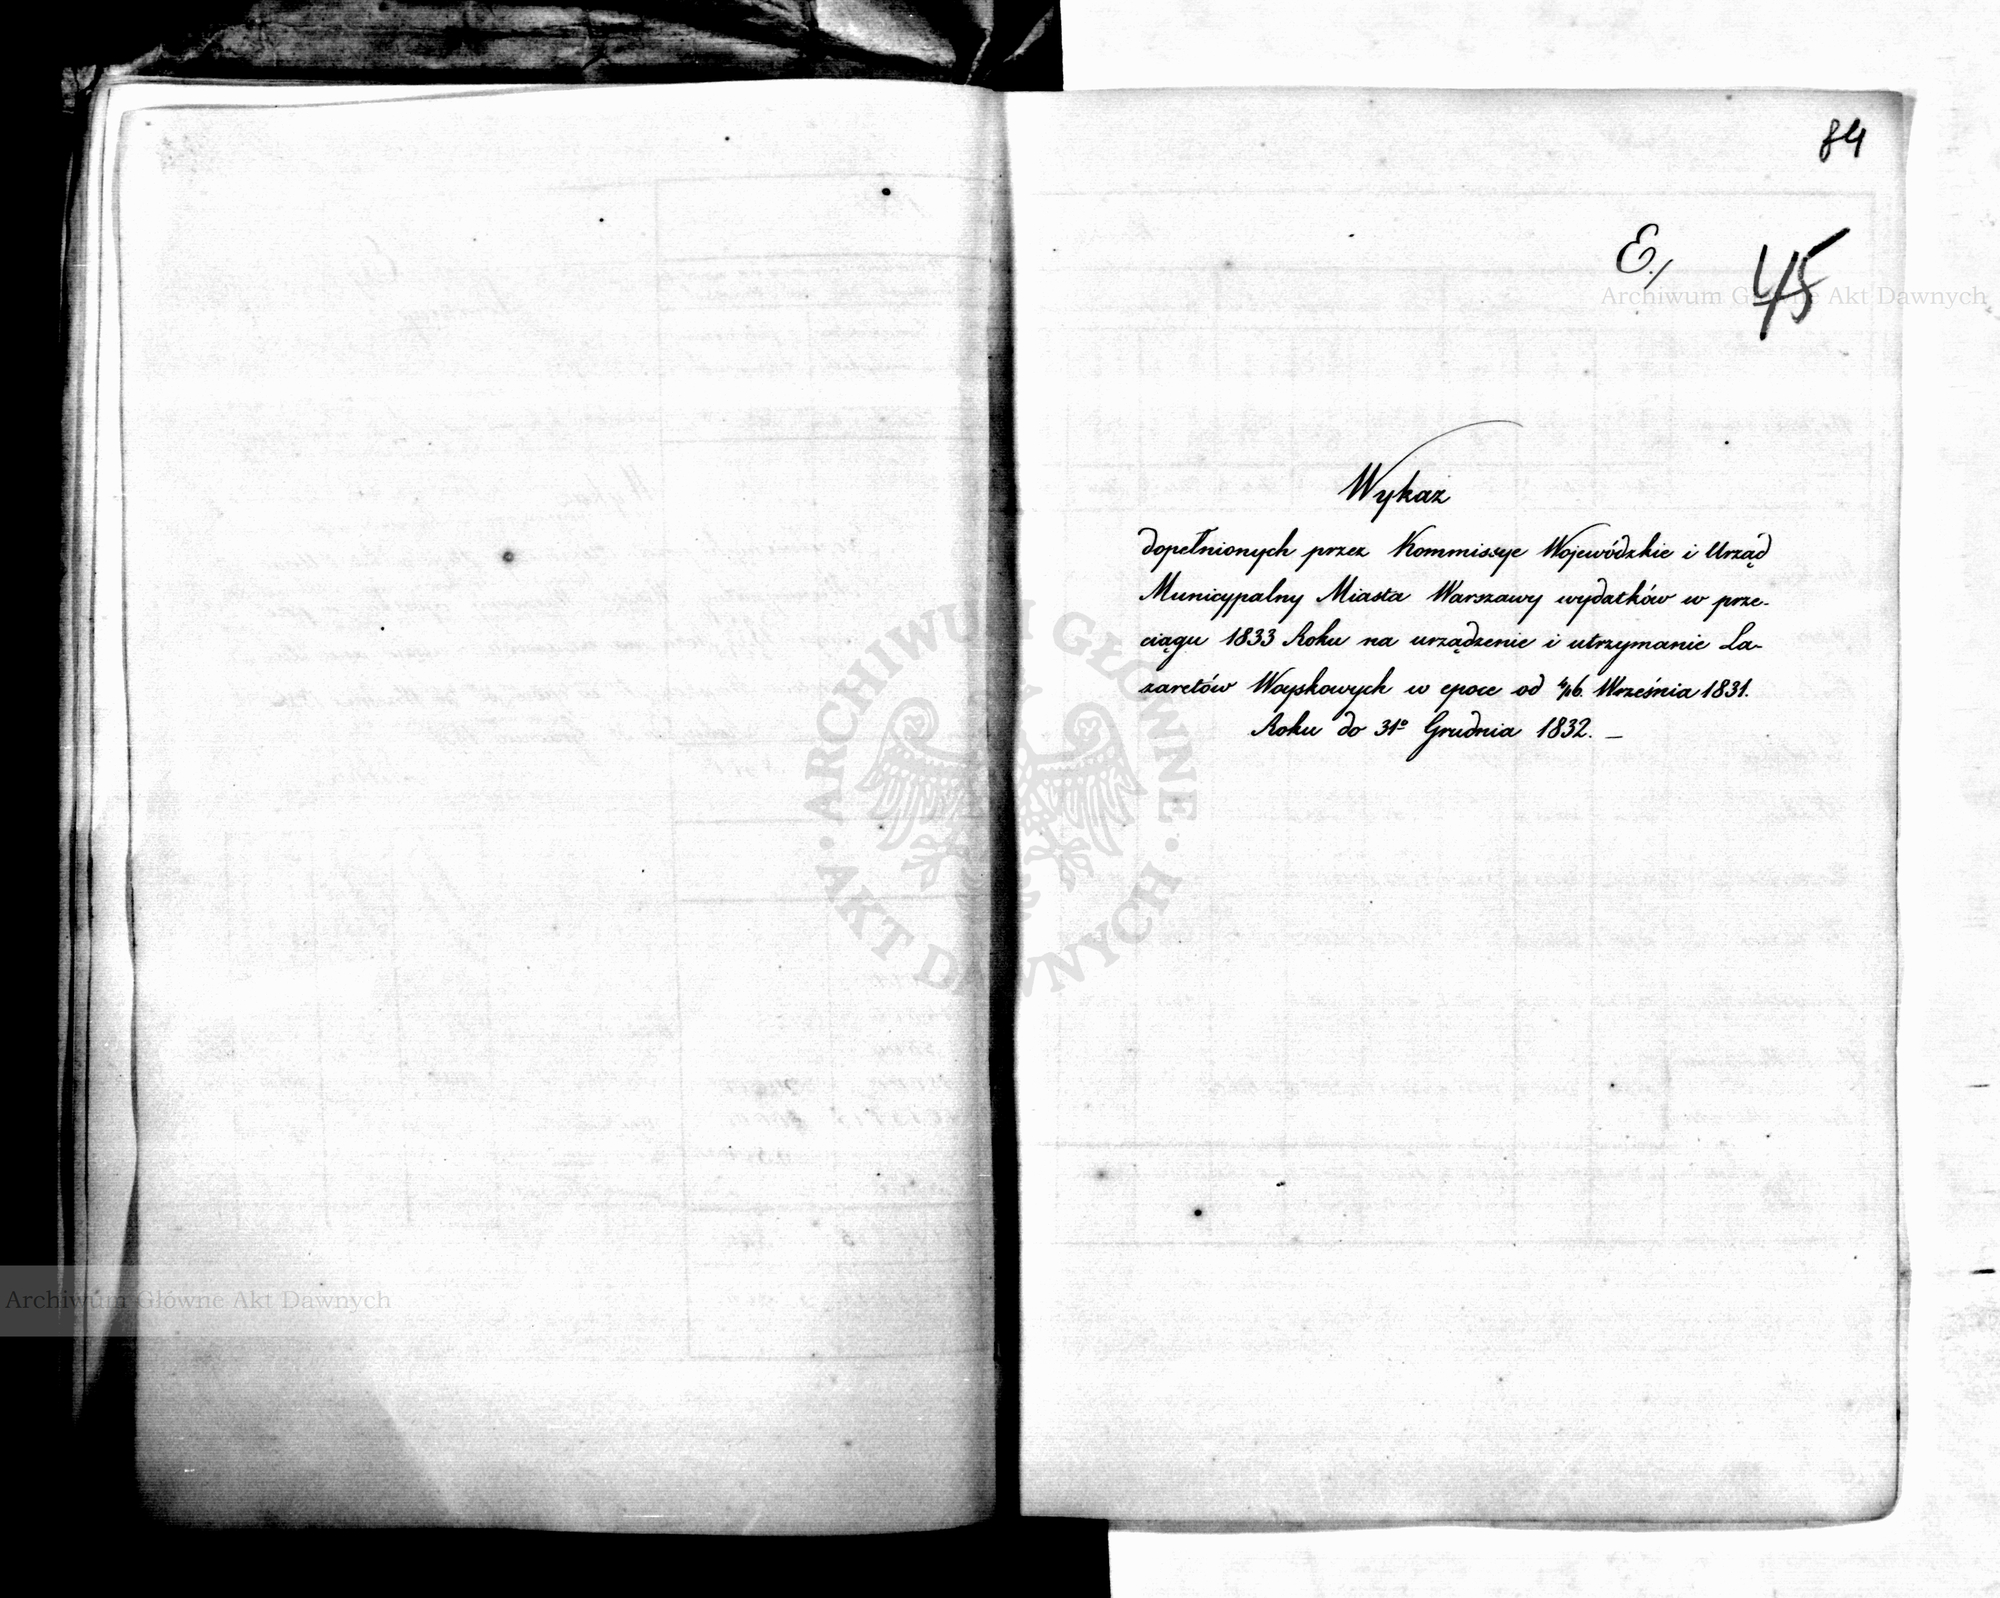 84
E./
45
Archiwum Główne Akt Dawnych
Wykaz
dopełnionych przez Kommissye Wojewódzkie i Urząd
Municypalny Miasta Warszawy wydatków w prze-
ciągu 1833 Roku na urządzenie i utrzymanie La-
zaretów Woyskowych w epoce od 4/16. Września 1831.
Roku do 31º Grudnia 1832. _
ARCHIWUM GŁÓWNE · AKT DAWNYCH ·
Archiwum Główne Akt Dawnych